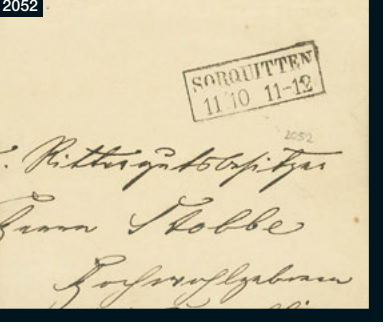 2052
SORQUITTEN
11 10 11-12
2052
. Rittergutsbesitzer
Herrn Stobbe
Hochwohlgeboren